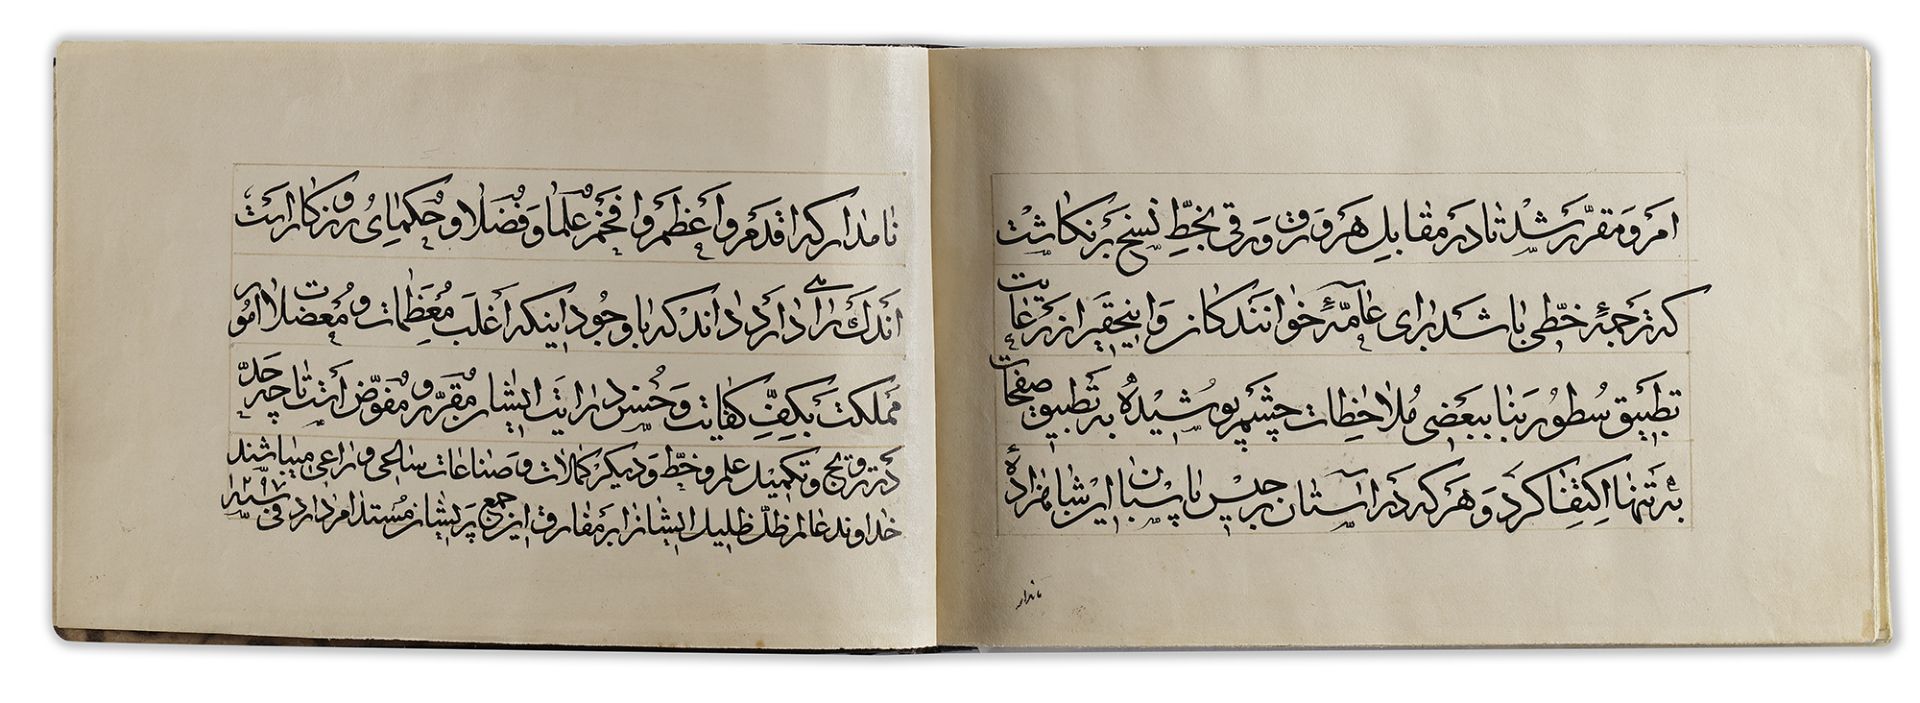 امر و مقرّر شد تا در مقابل هر ورق ورقی بخطّ نسخ بر نکاشت
که ترجمهٔ خطّی باشد برای عامّهٔ خوانندکان و اینحقیر از رعایت
تطبیق سطور بنا ببعضی ملاحظات چشم پوشیده به تطبیق صفحات
به تنها اکتفا کرد و هر که در آستان برجیس پاسبان این شاهزادهٔ
نامدار
نامدار که اقدم و اعظم و افخم علما و فضلا و حکمای روزکار است
اندک راهی دارد داند که با وجود اینکه اغلب معظمات و معضلات امور
مملکت بکفّ کفایت و حسن درایت ایشان مقرر و مفوّض است تا چه حدّ
در ترویج و تکمیل علم و خط و دیکر کمالات و صناعات ساعی و راعی میباشند
خداوند عالم ظلّ ظلیل ایشان را بر مفارق این جمع پریشان مستدام دارد فی سنة ۱۲۹۷